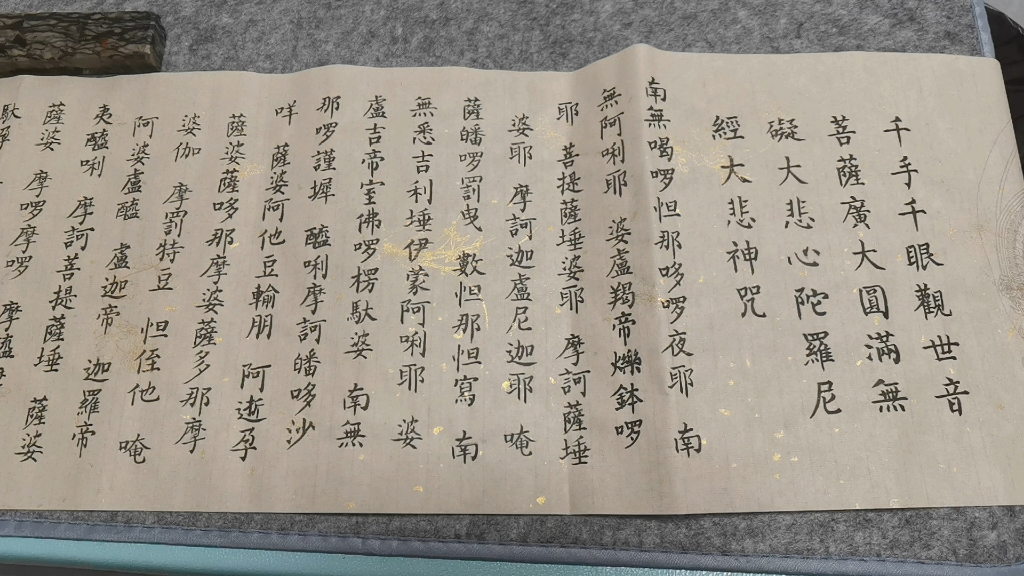 千手千眼觀世音
菩薩廣大圓滿無
礙大悲心陀羅尼
經大悲神咒
南無喝啰怛那哆啰夜耶 南
無阿唎耶 婆盧羯帝爍鉢啰
耶 菩提薩埵婆耶 摩訶薩埵
婆耶 摩訶迦盧尼迦耶 唵
薩皤啰罰曳 數怛那怛寫 南
無悉吉利埵伊蒙阿唎耶 婆
盧吉帝室佛啰楞馱婆 南無
那啰謹墀 醯唎摩訶皤哆沙
咩 薩婆阿他豆輸朋 阿逝孕
薩婆薩哆那摩婆薩多那摩
婆伽 摩罰特豆 怛侄他 唵
阿婆盧醯 盧迦帝 迦羅帝
夷醯唎 摩訶菩提薩埵 薩婆
薩婆 摩啰摩啰